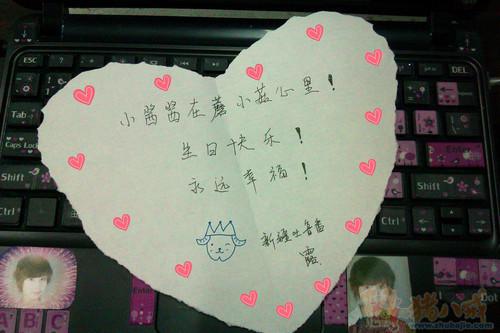 小酱酱在蘑小菇心里！
生日快乐！
永远幸福！
新疆吐鲁番
露
ESC
DEL
Tab
Caps Lock
Enter
Shift
Shift
Ctrl
Ctrl
A B C
Dot
www.zhubajie.com